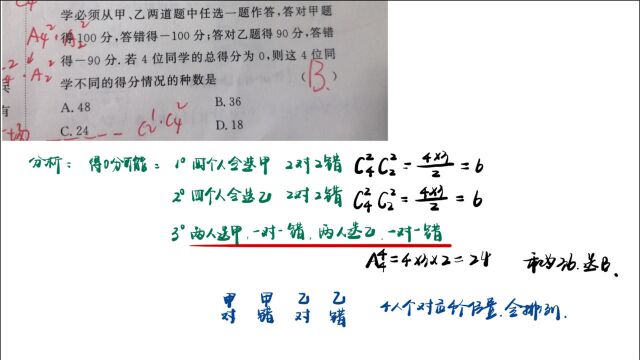 学必须从甲、乙两道题中任选一题作答,答对甲题
得100分,答错得-100分;答对乙题得90分,答错
得-90分.若4位同学的总得分为0,则这4位同
学不同的得分情况的种数是 ( B. )
A. 48 B. 36
C. 24 D. 18
A₄²·A₂²
·A₂²
C₂¹·C₄²
分析: 得0分可能: 1° 四个人全选甲 2对2错 C₄²C₂²=4×3/2=6
2° 四个人全选乙 2对2错 C₄²C₂²=4×3/2=6
3° 两人选甲,一对一错,两人选乙,一对一错
A₄⁴=4×3×2=24 和为36.选B.
甲 甲 乙 乙
对 错 对 错 4人个对应4个位置,全排列.